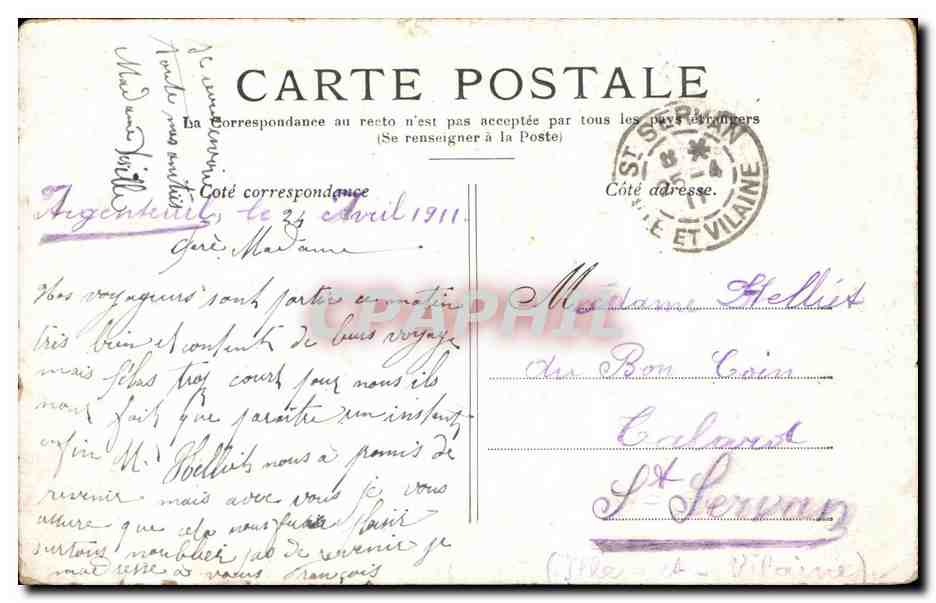 CARTE POSTALE
La Correspondance au recto n'est pas acceptée par tous les pays étrangers
(Se renseigner à la Poste)
Côté correspondance
Côté adresse.
Argenteuil, le 24 Avril 1911
Chère Madame
Nos voyageurs sont partie ce matin
très bien et contents de leurs voyage
mais hélas trop court pour nous ils
nont fait que paraître un instant
enfin M. Helliet nous à promis de
revenir mais avec vous je vous
assure que cela nous fera plaisir
surtous noublier pas de revenir je
madresse à vous François
toute mes amitiés
Madame
Madame Helliet
du Bon Coin
Talard
St Servan
(Ille - et - Vilaine)
ST SERVAN
8 *
25 - 4
11
ILLE ET VILAINE
CPAPHIL